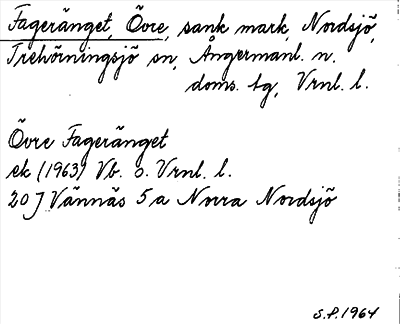 Fageränget, Övre, sank mark, Nordsjö,
Trehörningsjö sn, Ångermanl. n.
doms. tg, Vrnl. l.
Övre Fageränget
ek (1963) Vb. o. Vrnl. l.
20 J Vännäs 5 a Norra Nordsjö
S.P. 1964